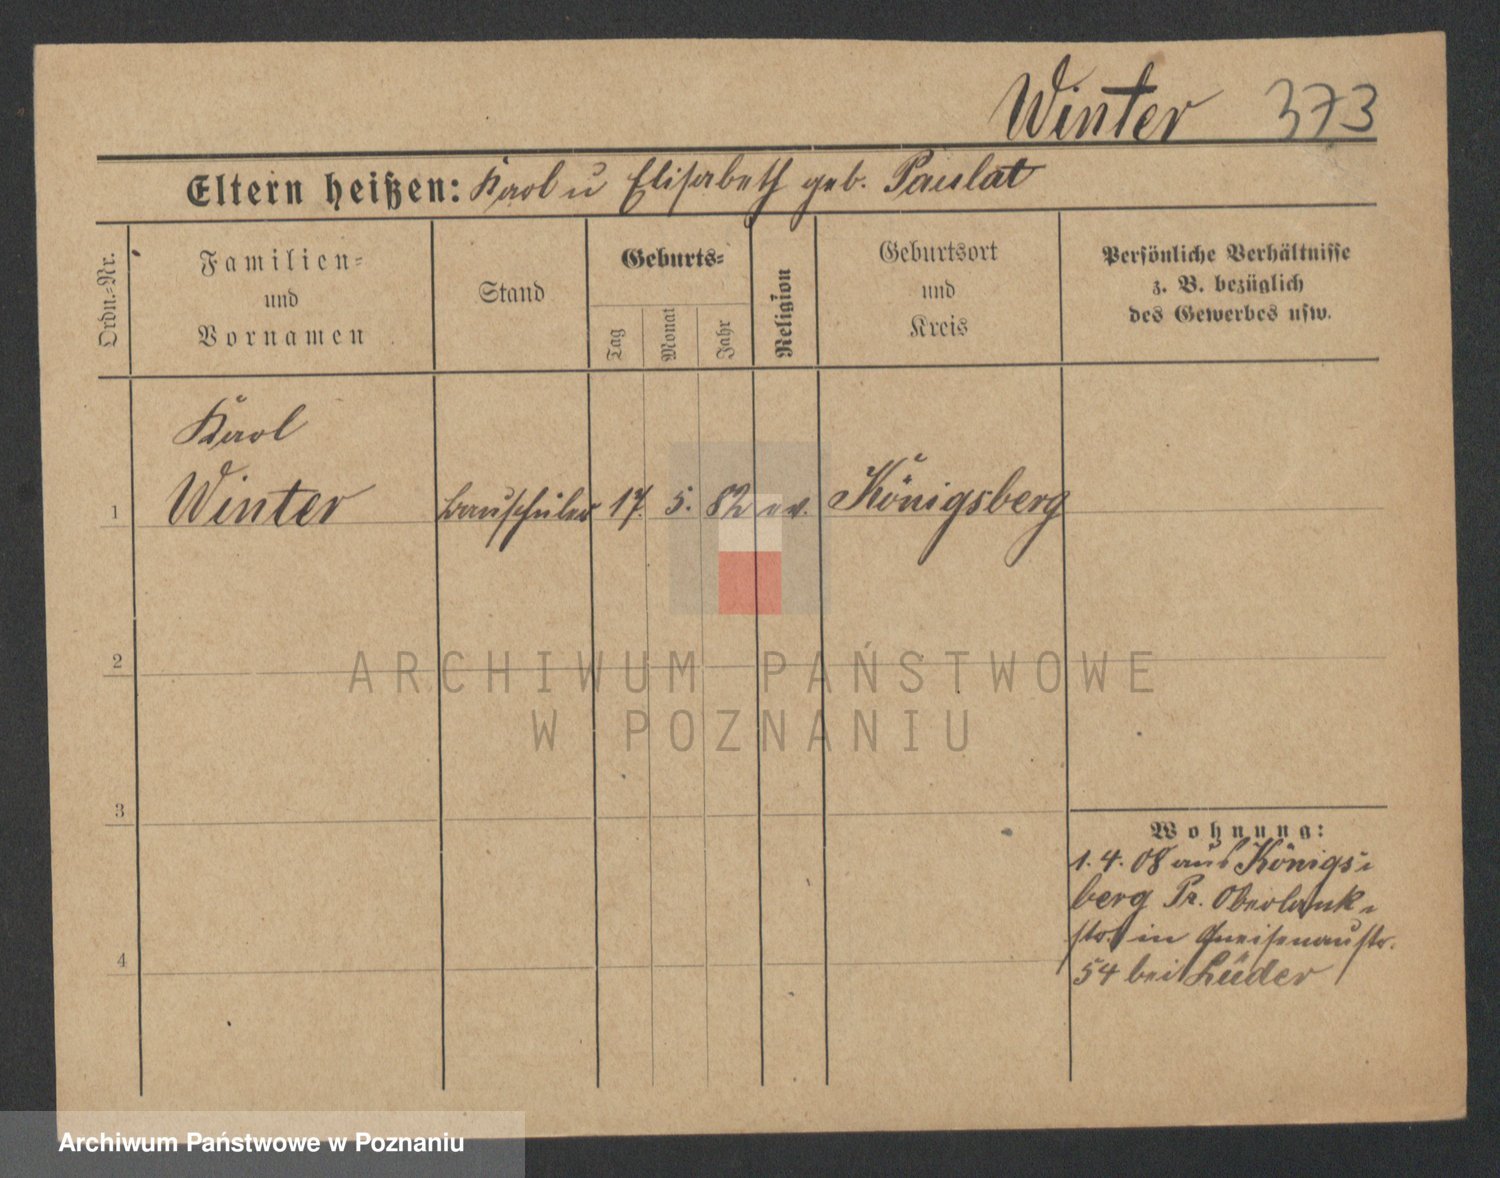 Winter 373
Eltern heißen: Karl u Elisabeth geb. Paulat
Ordn.-Nr.
Familien-
und
Vornamen
Stand
Geburts-
Tag
Monat
Jahr
Religion
Geburtsort
und
Kreis
Persönliche Verhältnisse
z. B. bezüglich
des Gewerbes usw.
Karl
1 Winter Bauschüler 17. 5. 82 ev. Königsberg
2
3
4
Wohnung:
1. 4. 08 aus Königs-
berg Pr. Oberlank-
str. in Gneisenaustr.
54 bei Lüder
ARCHIWUM PAŃSTWOWE
W POZNANIU
Archiwum Państwowe w Poznaniu